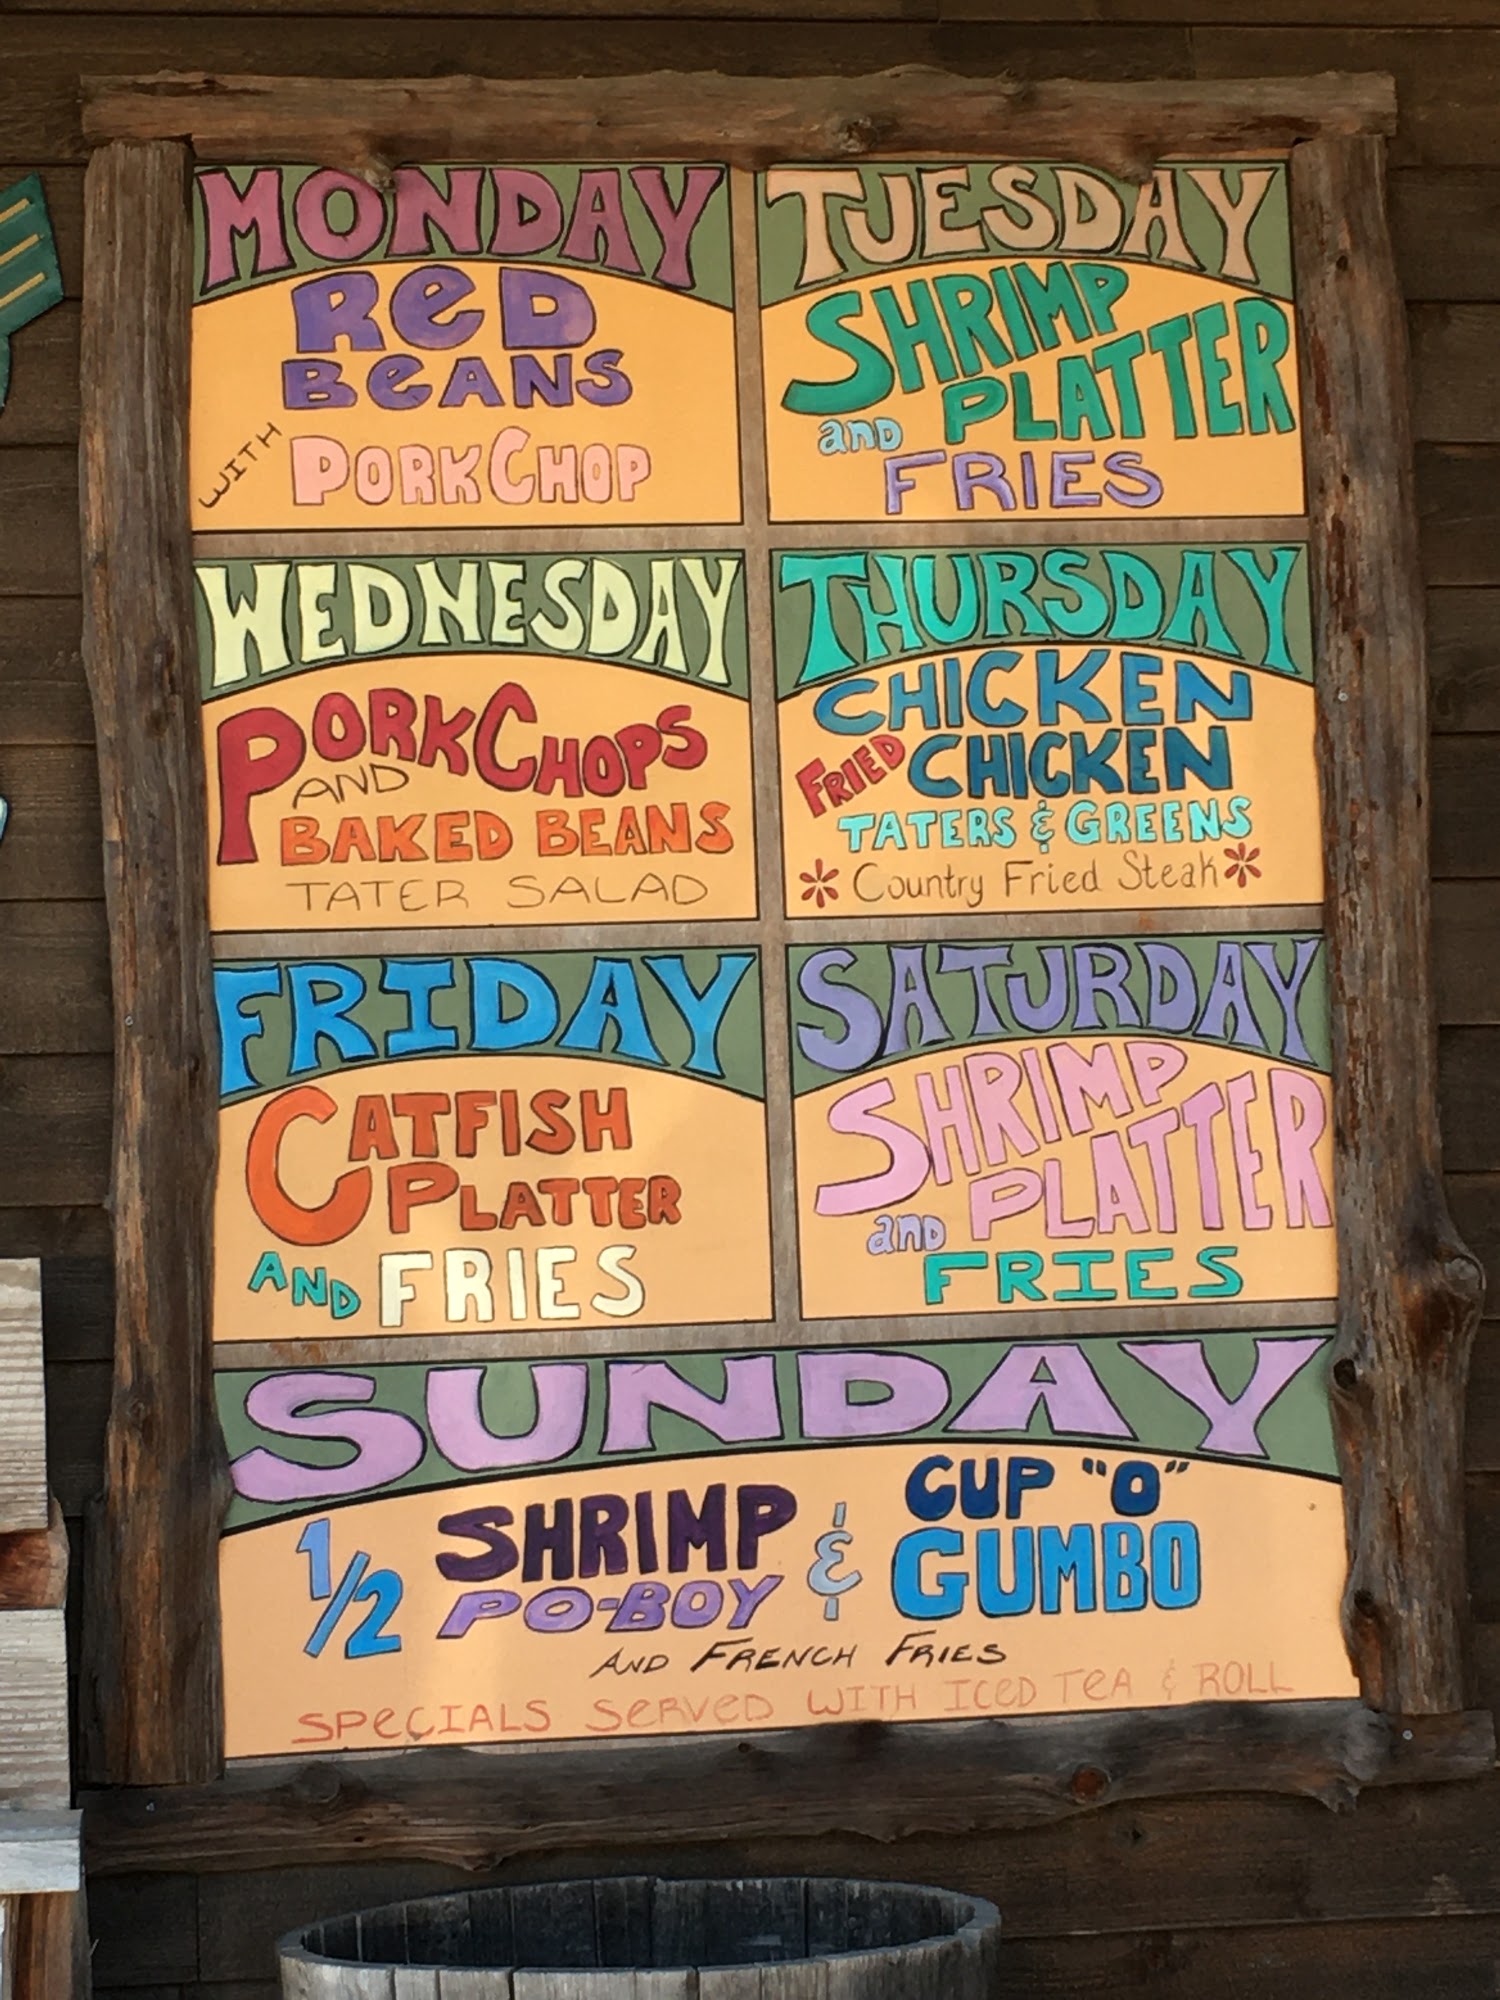 MONDAY
ReD
BeANS
WITH
PORKCHOP
TUESDAY
SHRIMP
PLATTER
and
FRIES
WEDNESDAY
PORKCHOPS
AND
BAKED BEANS
TATER SALAD
THURSDAY
CHICKEN
FRIED CHICKEN
TATERS & GREENS
* Country Fried Steak *
FRIDAY
CATFISH
PLATTER
AND FRIES
SATURDAY
SHRIMP
PLATTER
and
FRIES
SUNDAY
1/2 SHRIMP & CUP "O"
PO-BOY GUMBO
AND FRENCH FRIES
SPeCIALS SeRVeD WITH ICeD TeA & ROLL